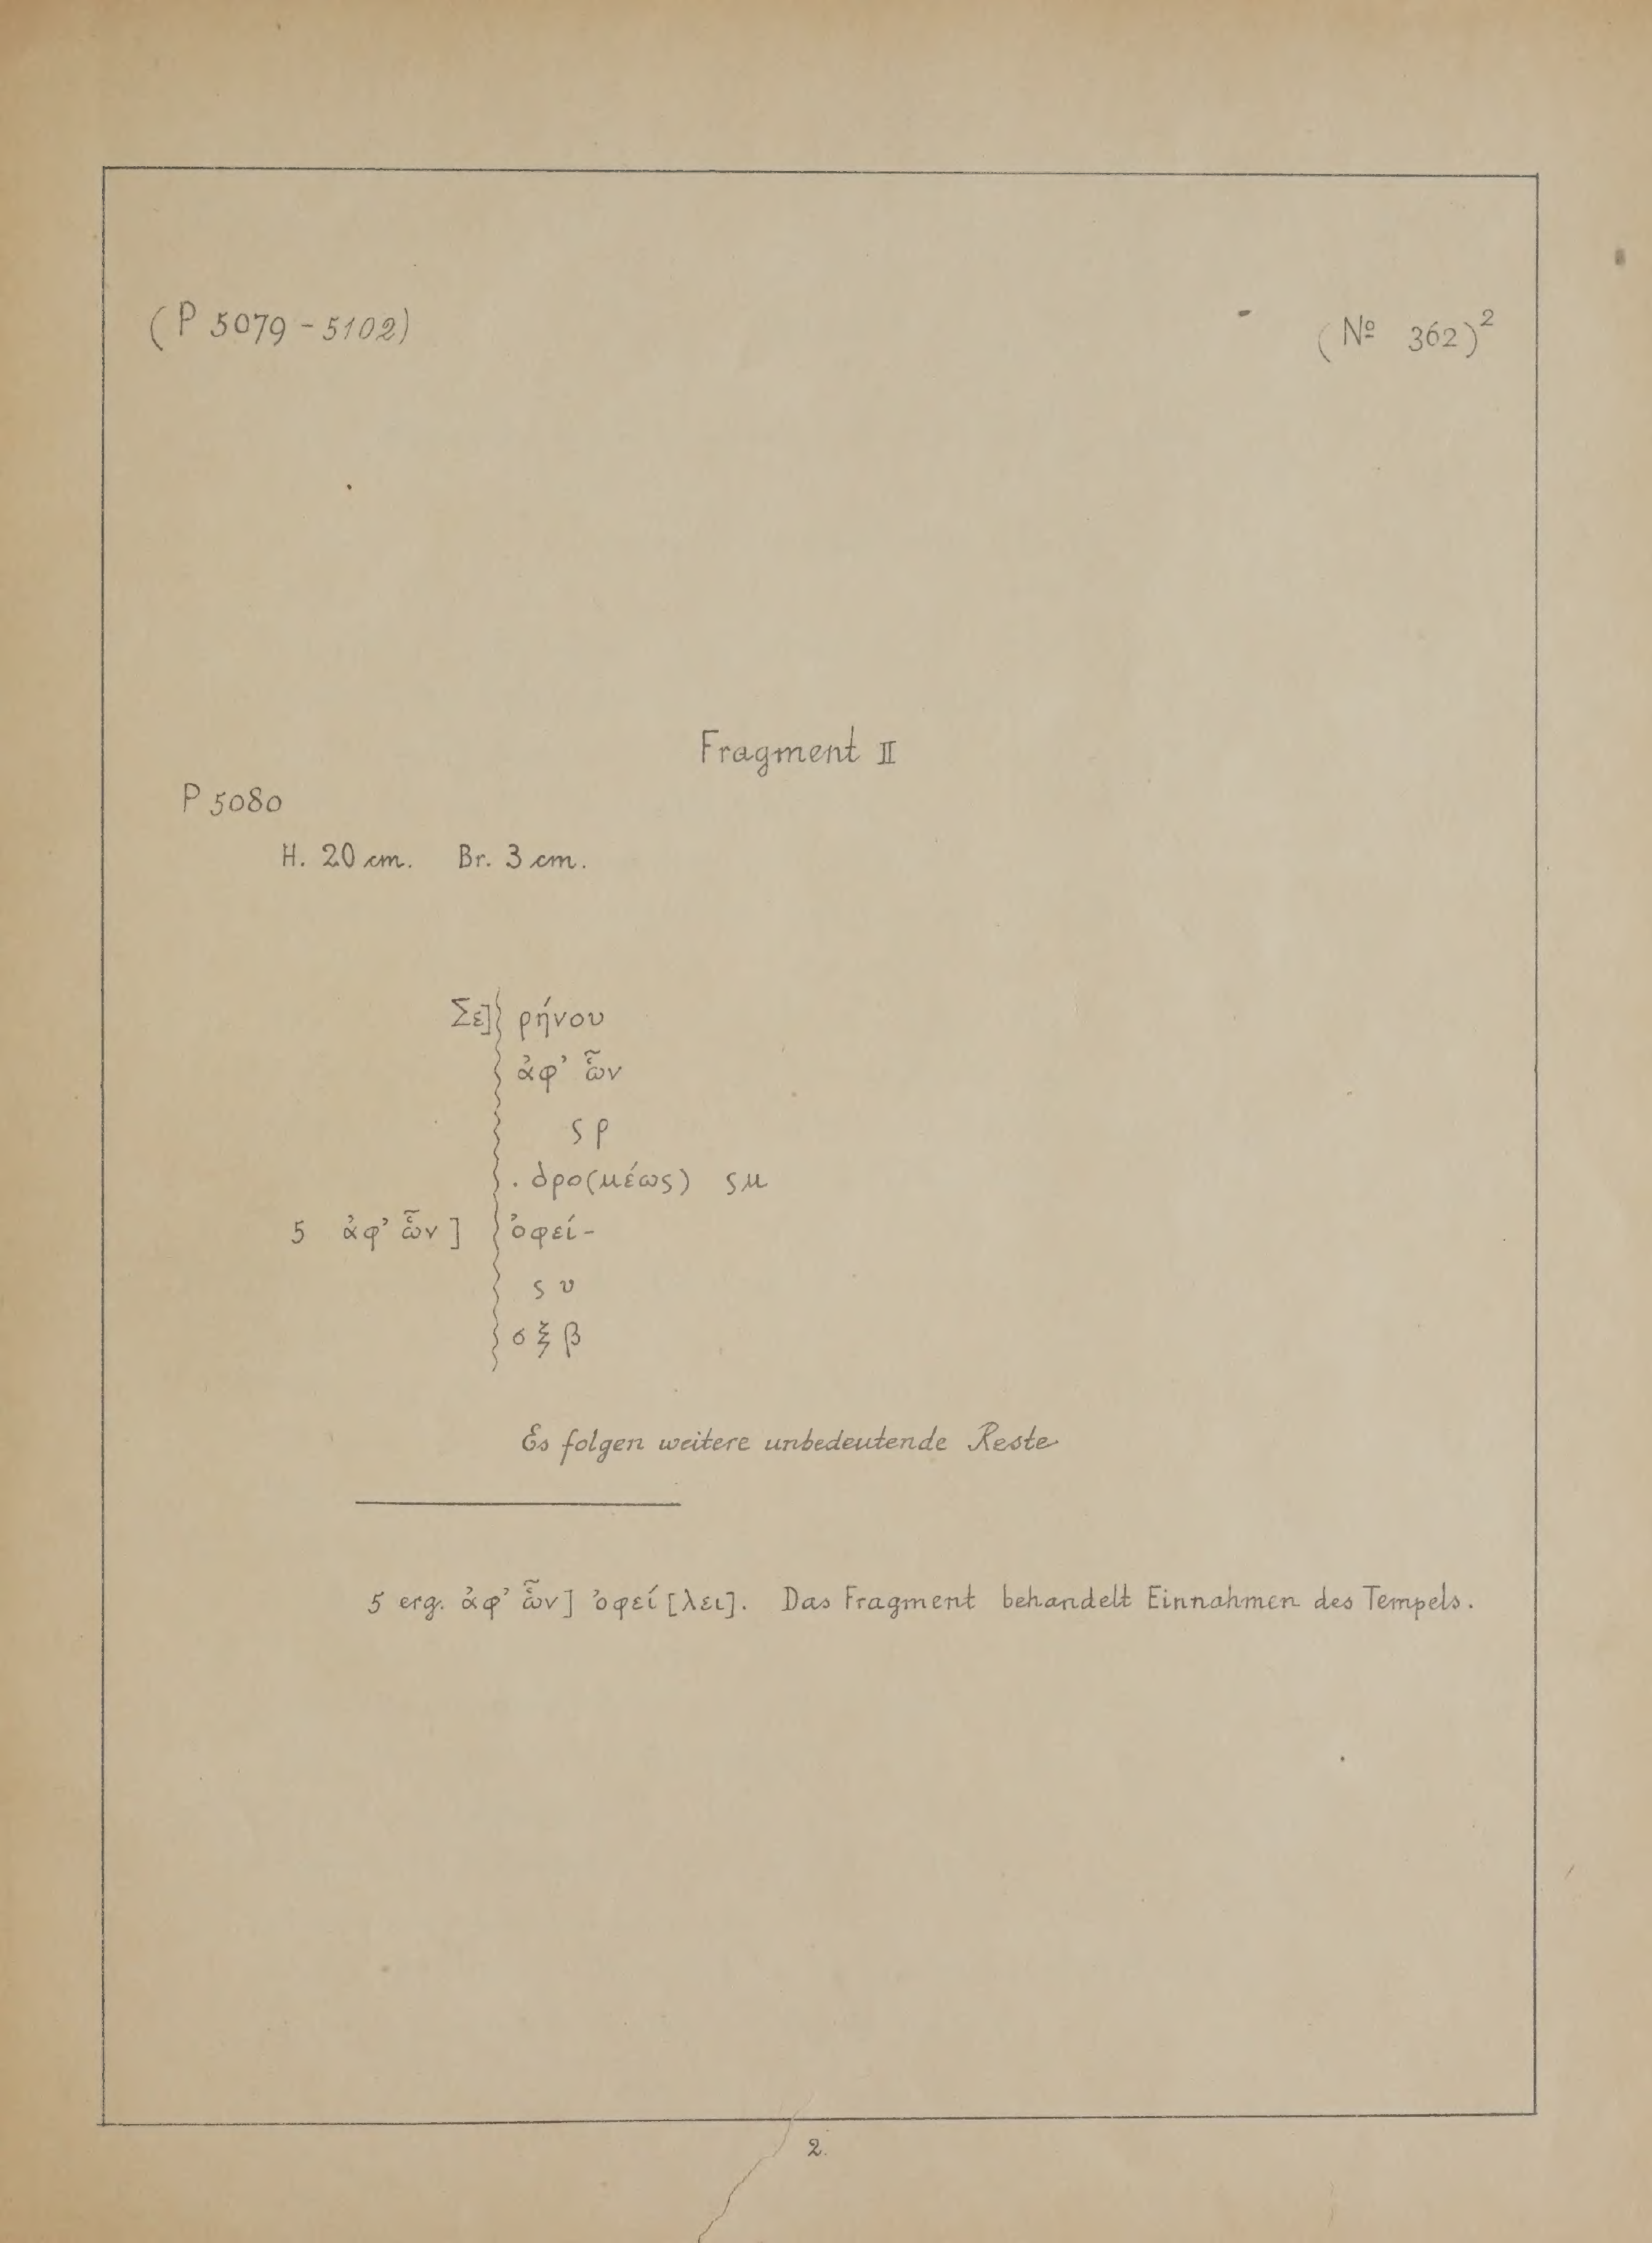 (P 5079 - 5102) (№ 362)²
Fragment II
P 5080
H. 20 cm. Br. 3 cm.
Σε] ρήνου
ἀφ' ὧν
ς ρ
. δρο(μέως) ς μ
5 ἀφ' ὧν ] ὀφεί-
ς υ
σ ξ β
Es folgen weitere unbedeutende Reste
5 erg. ἀφ' ὧν] ὀφεί [λει]. Das Fragment behandelt Einnahmen des Tempels.
2.